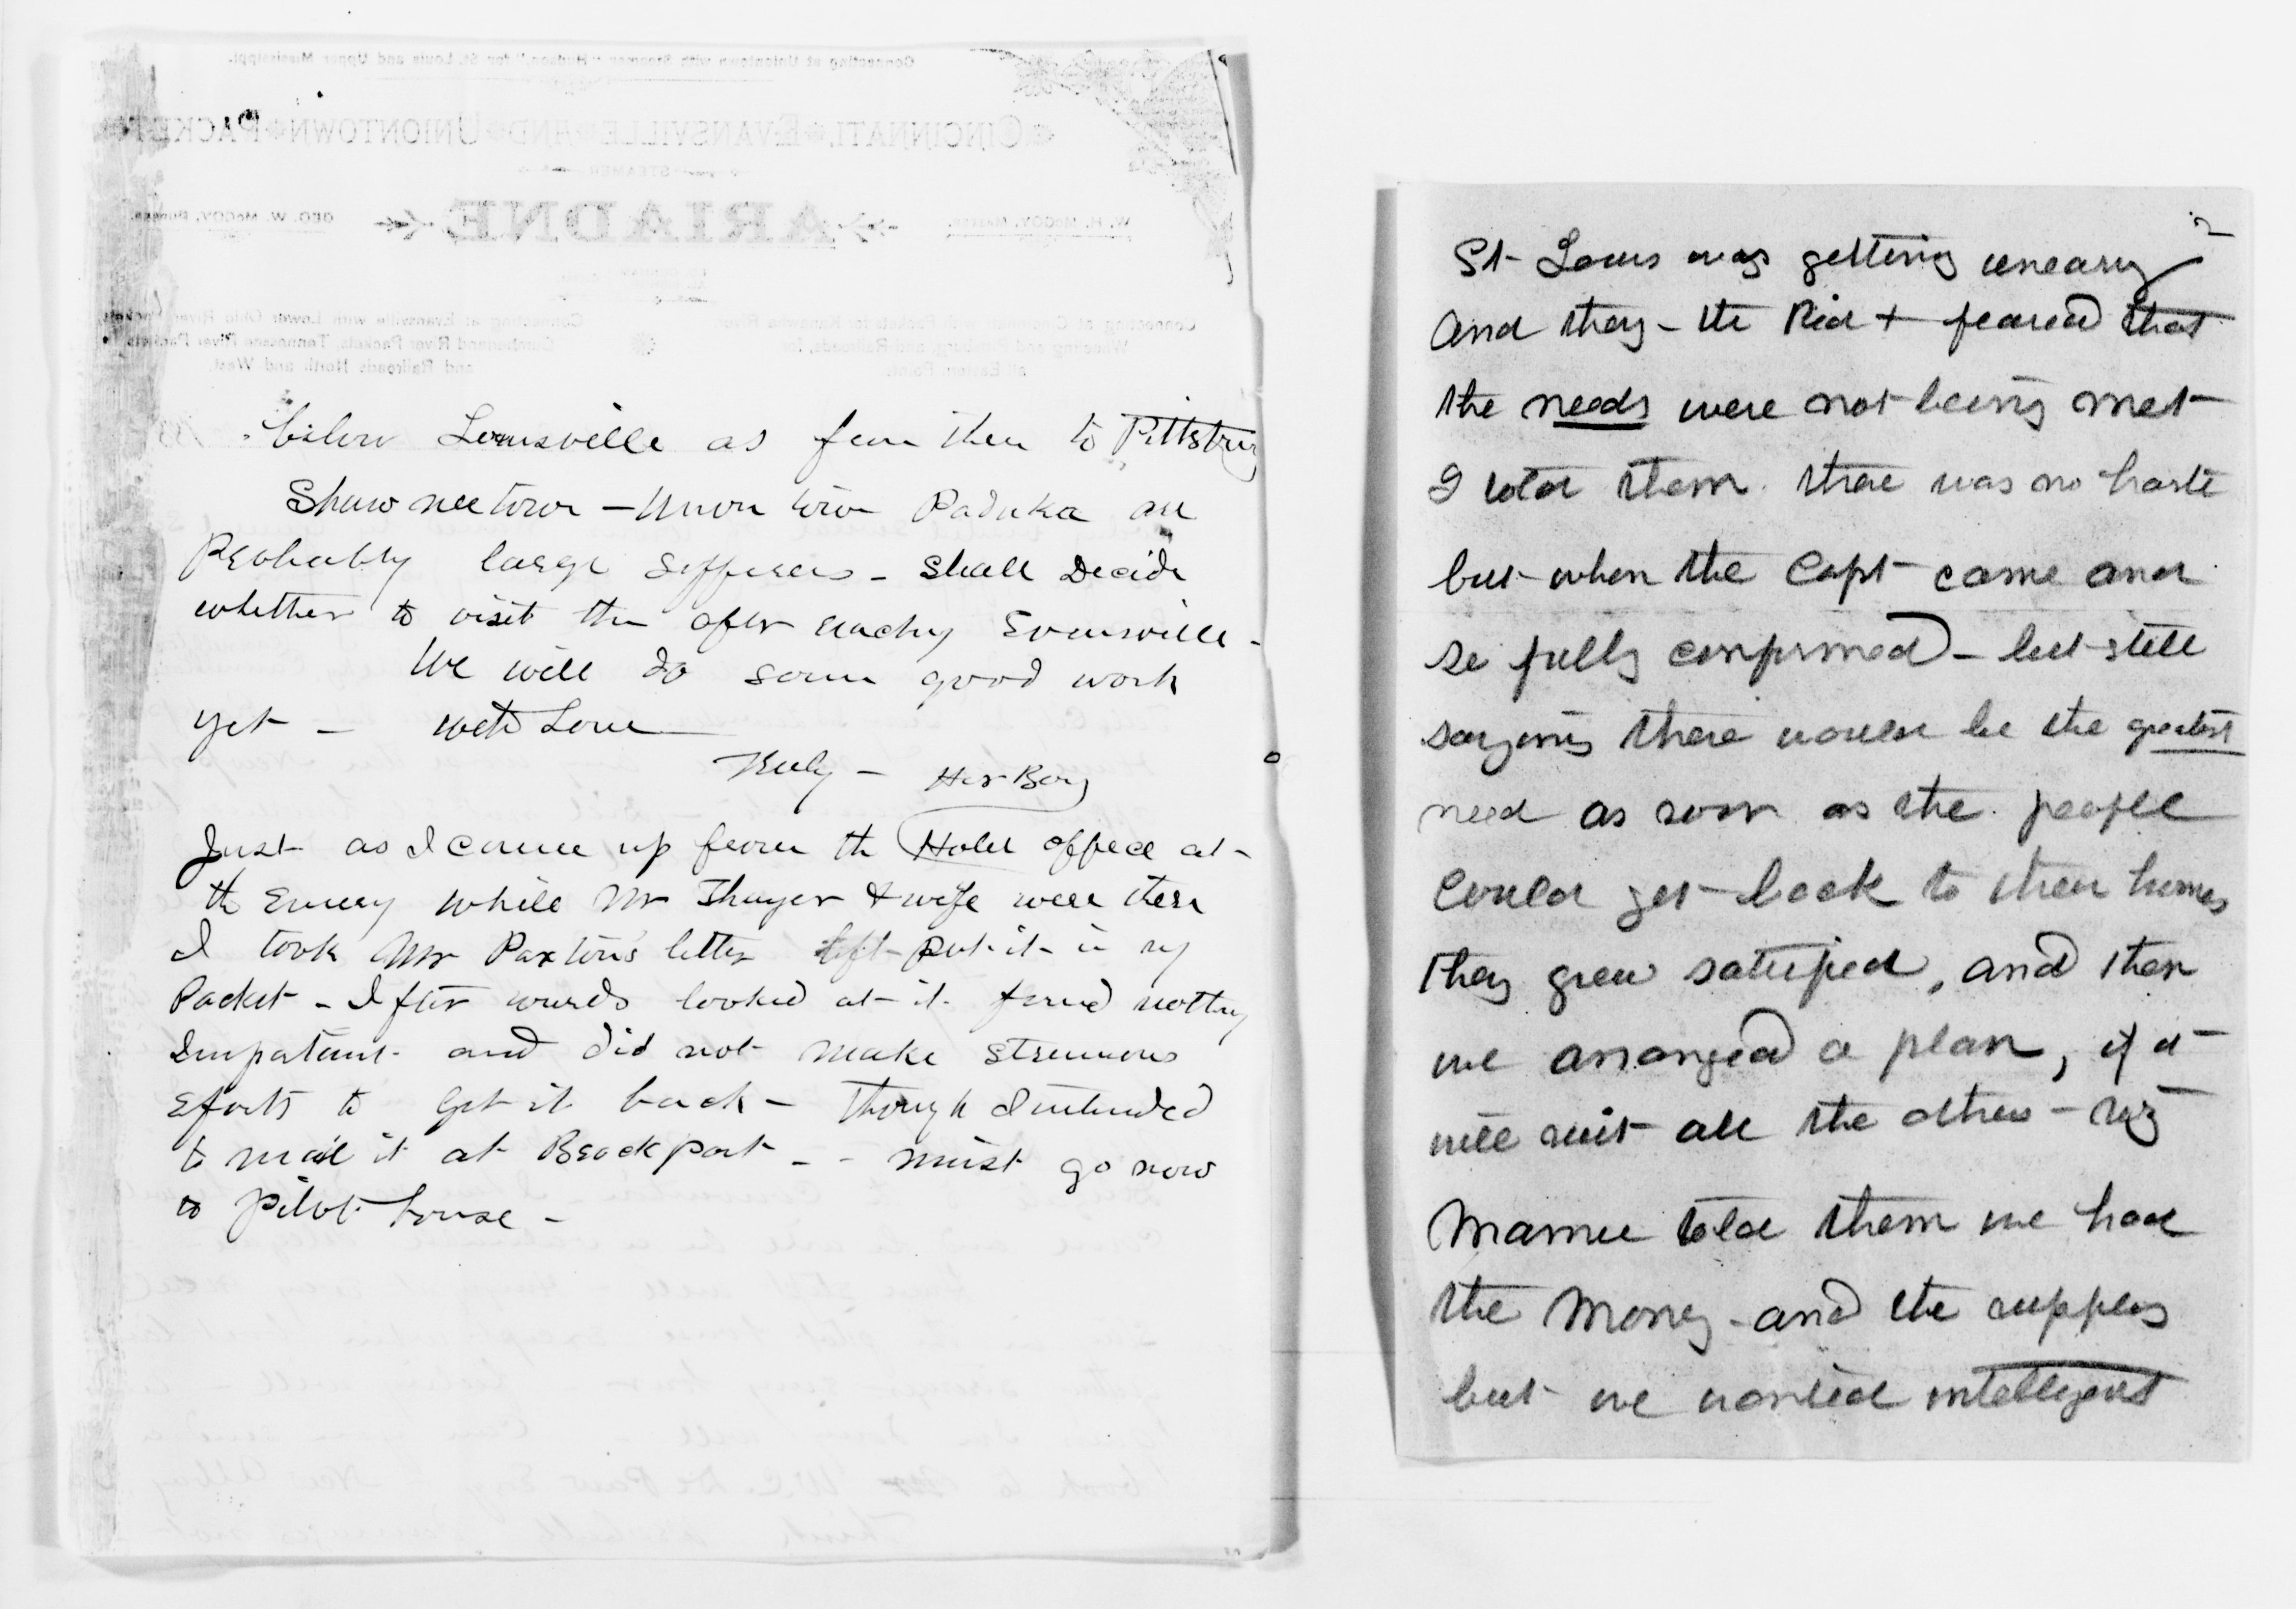 Connecting at Uniontown with Steamer "Hudson" for St. Louis and Upper Mississippi.
CINCINNATI, EVANSVILLE AND UNIONTOWN PACKET
STEAMER
W. H. McCOY, Master. ARIADNE GEO. W. McCOY,
Connecting at Cincinnati with Packets for Kanawha River
Wheeling and Pittsburg, and Railroads, for
all Eastern Points.
Connecting at Evansville with Lower Ohio River Packets,
Cumberland River Packets, Tennessee River Packets
and Railroads North and West.
below Louisville as from then to Pittsburg
Shawneetown - Union town Paduka are
Probably large sufferers - Shall Decide
whether to visit them after reachg Evansville -
We will do some good work
yet - with Love
Truly - Her Boy
Just as I came up from the Hotel office at
the Emery while Mr Thayer & wife were there
I took Mr Paxton's letter left put it in my
Packet - After wards looked at it found nothing
Important and did not make strenuous
Eforts to Get it back - though I intended
to mail it at Brockport - - must go now
to pilot house -
2
St Louis was getting uneasy
and they - the Red + feared that
the needs were not being met
I told them there was no haste
but when the Capt came and
so fully confirmed - but still
saying there would be the greatest
need as soon as the people
could get back to their homes
they grew satisfied, and then
we arranged a plan, if it
will suit all the others - viz
Mamie told them we had
the Money - and the supplies
but we wanted intelligent